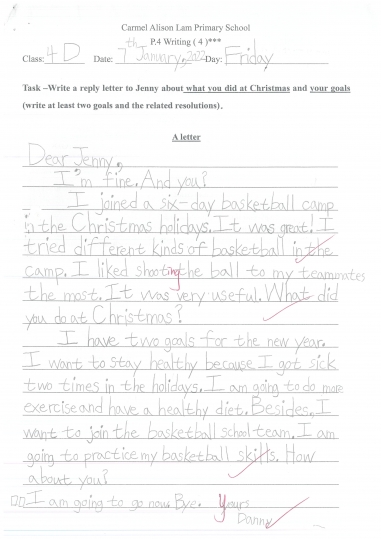 Carmel Alison Lam Primary School
P.4 Writing ( 4 )***
Class: 4D Date: 7th January, 2022 Day: Friday
Task –Write a reply letter to Jenny about what you did at Christmas and your goals
(write at least two goals and the related resolutions).
A letter
Dear Jenny,
I'm fine. And you?
I joined a six-day basketball camp
in the Christmas holidays. It was great! I
tried different kinds of basketball in the
camp. I liked shooting the ball to my teammates
the most. It was very useful. What did
you do at Christmas?
I have two goals for the new year.
I want to stay healthy because I got sick
two times in the holidays. I am going to do more
exercise and have a healthy diet. Besides, I
want to join the basketball school team. I am
going to practice my basketball skills. How
about you?
I am going to go now. Bye. Yours
Danny